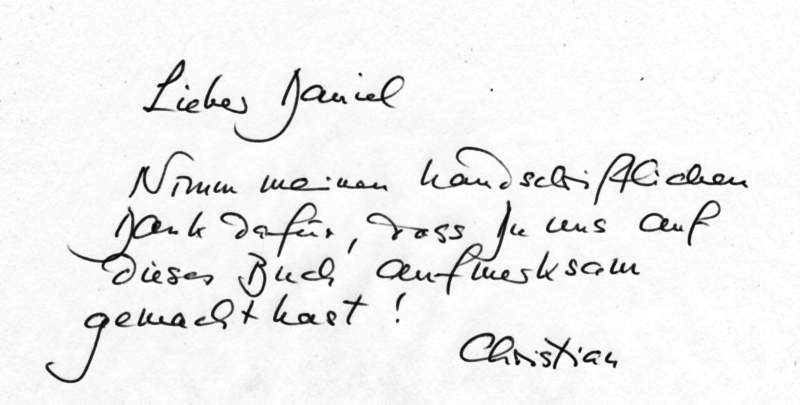 Lieber Daniel
Nimm meinen handschriftlichen
Dank dafür, dass Du uns auf
dieses Buch aufmerksam
gemacht hast !
Christian